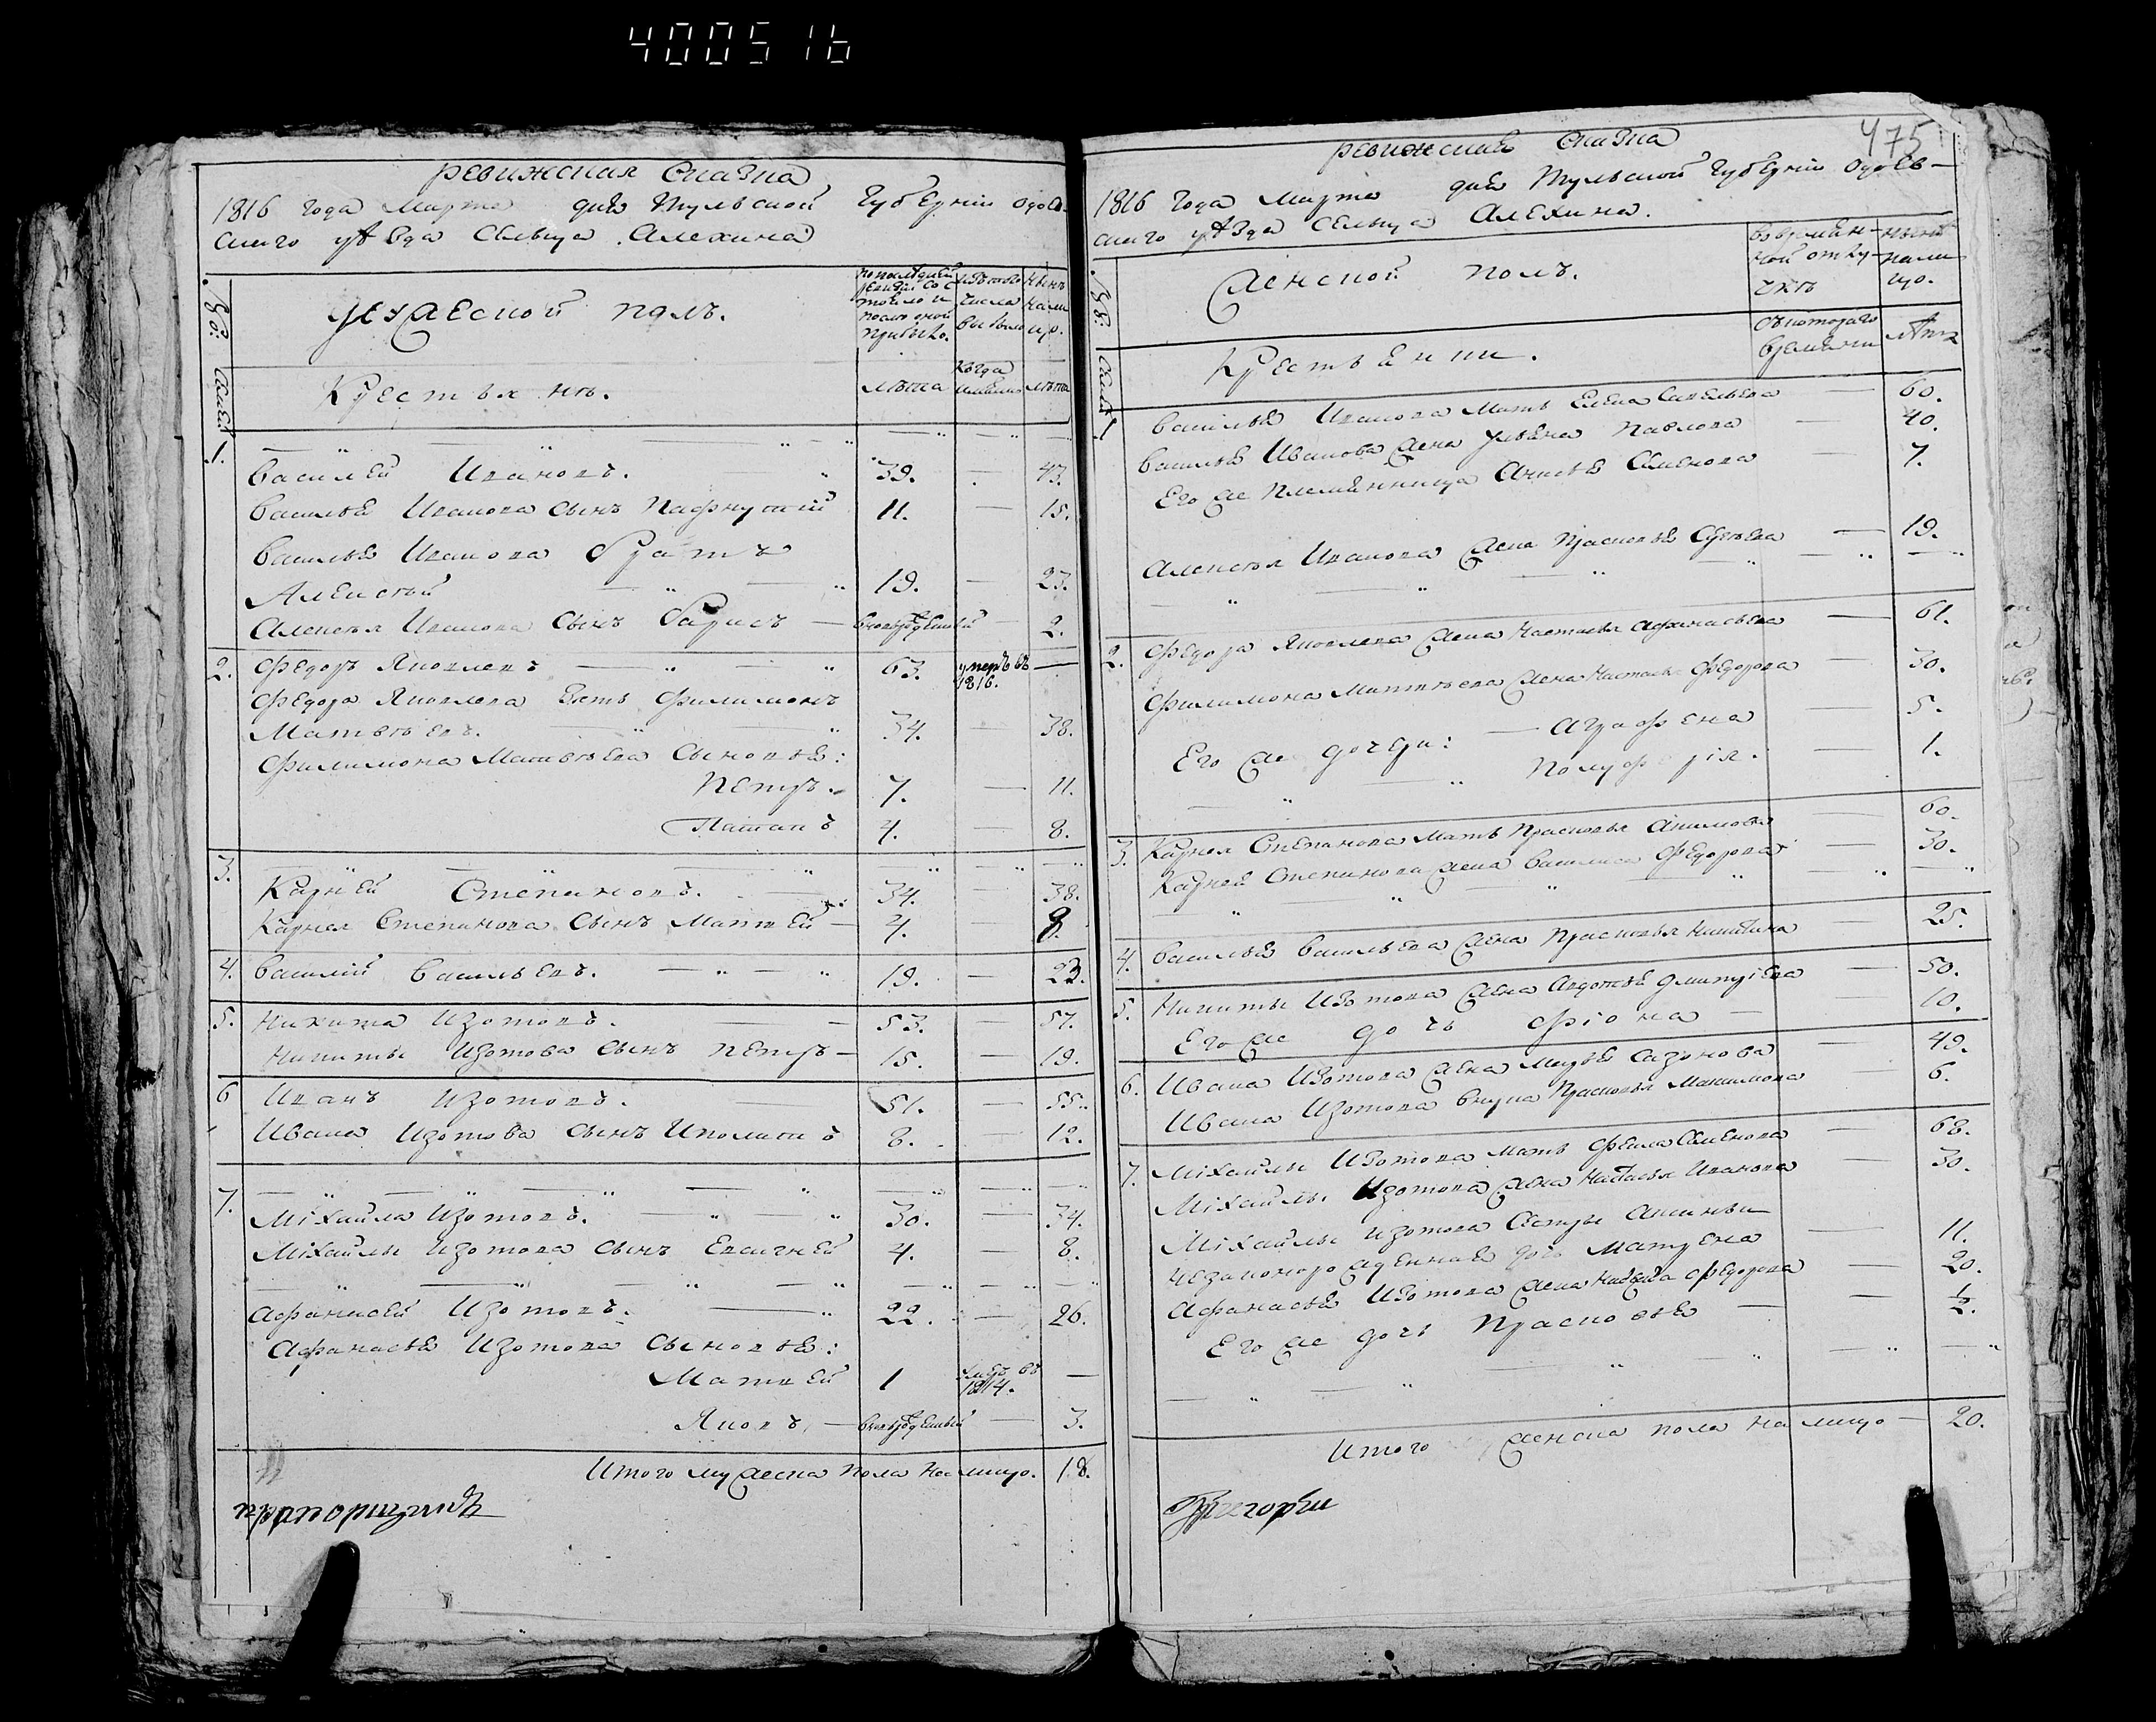 400516
ревижская Сказка
1816 года Марта дня Тульской Губернии Одоев-
скаго уѣзда Сельца Алехина
№ Семей
Мужеской полъ.
по последней ревизии состояло и после оной прибыло.
изъ того числа выбыло
нынѣ на лицо.
Крестьянъ.
лѣта
когда имянно
лѣта
1.
Василей Ивановъ. 39. — 43.
Василья Иванова сынъ Пафнутий 11. — 15.
Василья Иванова братъ
Алексѣй 19. — 23.
Алексея Иванова сынъ Барисъ — вноврожденный — 2.
2. Федоръ Яковлевъ — 63. умеръ въ 1816. —
Федора Яковлева зять Филимонъ
Матвѣевъ. 34. — 38.
Филимона Матвѣева сыновья:
Петръ. 7. — 11.
Патапъ 4. — 8.
3.
Карнѣй Степановъ. 34. — 38.
Карнея Степанова сынъ Матвей — 4. 8.
4. Василий Васильевъ. — 19. — 23.
5. Никита Изотовъ. — 53. — 57.
Никиты Изотова сынъ Петръ — 15. — 19.
6 Иванъ Изотовъ. 51. — 55.
Ивана Изотова сынъ Иполитъ 8. — 12.
7.
Михайла Изотовъ. — 30. — 34.
Михайлы Изотова сынъ Евсигней 4. — 8.
Афанасей Изотовъ. — 22. — 26.
Афанасья Изотова сыновья:
Матвей 1 умеръ въ 1814. —
Яковъ, — вноврожденный — 3.
Итого мужеска пола на лицо. 18.
прапорщикъ
475
ревижская Сказка
1816 года Марта дня Тульской Губернии Одоев-
скаго уѣзда Сельца Алехина.
№ Семьи
Женской полъ.
во времянной отлучкѣ
нынѣ на лицо.
Крестьянки.
съ котораго времяни
лѣта
1. Василья Иванова мать Елена Савельева — 60.
Василья Иванова жена Ульяна Павлова — 40.
Его же племянница Семенова — 7.
Алексея Иванова жена Прасковья Сергѣева — 19.
2. Федора Яковлева жена Настасья Афанасьева — 61.
Филимона Матвѣева жена Настасья Федорова — 30.
Его же дочери: — Аграфена — 5.
— 1.
3. Карнея Степанова мать Прасковья Акимова 60.
Карнея Степанова жена Василиса Федорова 30.
4. Василья Васильева жена Прасковья Никитина — 25.
5. Никиты Изотова жена Авдотья Дмитріева — 50.
Его же дочь Фіона — 10.
6. Ивана Изотова жена Марья Сазонова — 49.
Ивана Изотова внука Прасковья Максимова — 6.
7. Михайлы Изотова мать Фекла Семенова — 68.
Михайлы Изотова жена Наталья Иванова — 30.
Михайлы Изотова сестры Аксиньи
незаконорожденная дочь Матрена — 11.
Афанасья Изотова жена Федорова — 20.
Его же дочь Прасковья — ½.
Итого женска пола на лицо — 20.
Григорьи